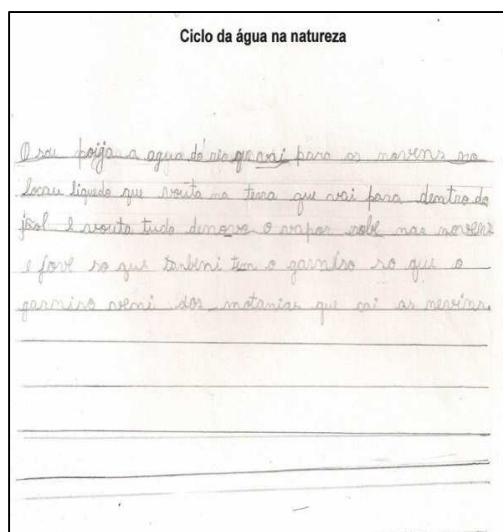 Ciclo da água na natureza
O sou a agua do rio que vai para as novens no
locau liquedo que vouta na tera que vai para dentro do
jsol e vouta tudo denovo o vapor sobe nas novens
e jove so que tanbeni tem o garniso so que o
garniso veni dos motanias que cai as nevins.